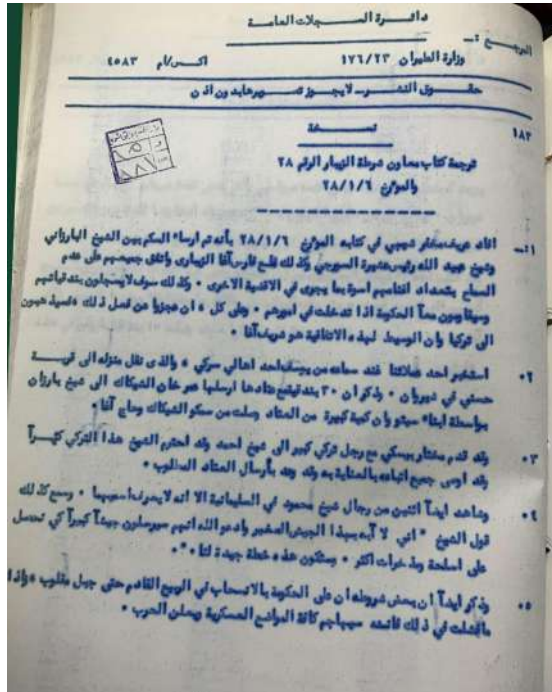 دائرة السجلات العامة
المرجع :ـ
وزارة الطيران ١٧٦/٢٣ اكس/ام ٤٥٨٣
حقوق النشر ـ لايجوز تصويرها بدون اذن
١٨٢
نسخة
ترجمة كتاب معاون شرطة الزيبار الرقم ٢٨
والمؤرخ ٢٨/١/٦
١ـ: افاد عريف مختار شيبي في كتابه المؤرخ ٢٨/١/٦ بأنه تم ارساء السلم بين الشيخ البارزاني
وشيخ عبيد الله رئيس عشيرة السورجي وكذلك فلح فارس آغا الزيباري واتفق جميعهم على عدم
السماح بتعداد اغنامهم اسوة بما يجرى في الاقضية الاخرى ٠ وكذلك سوف لايسجلون بندقياتهم
وسيقاومون معاً الحكومة اذا تدخلت في امورهم ٠ وعلى كل ، ان عجزوا عن فعل ذلك فسيذهبون
الى تركيا وان الوسيط لهذه الاتفاقية هو شريف آغا ٠
٢٠ استخبر احد عملائنا عند سماعه من احد اهالي سركي ، والذى نقل منزله الى قرية
حسني في شيروان ٠ وذكر ان ٣٠ بندقية مع عتادها ارسلها عمر خان الشيكاك الى شيخ بارزان
بواسطة ابناء سيتو وان كمية كبيرة من العتاد وصلت من سمكو الشيكاك وحاج آغا ٠
٣٠ وقد قدم مختار بيسكي مع رجل تركي كبير الى شيخ احمد وقد احترم الشيخ هذا التركي كثيراً
وقد اوصى جميع اتباعه بالعناية به وقد وعد بأرسال العتاد المطلوب ٠
٤٠ وشاهد ايضاً اثنين من رجال شيخ محمود في السليمانية الا انه لايعرف اسميهما ٠ وسمع كذلك
قول الشيخ " اني لا آبه بهذا الجيش الصغير وادعو الله انهم سيرسلون جيشاً كبيراً كي نحصل
على اسلحة وذخيرات اكثر ٠ وستكون هذه خطة جيدة لنا ٠" ٠
٥٠ وذكر ايضاً ان بعض شروطه ان على الحكومة بالانسحاب في الربيع القادم حتى جبل مقلوب ، واذا
مافشلت في ذلك فأنه سيهاجم كافة المواضع العسكرية ويعلن الحرب ٠